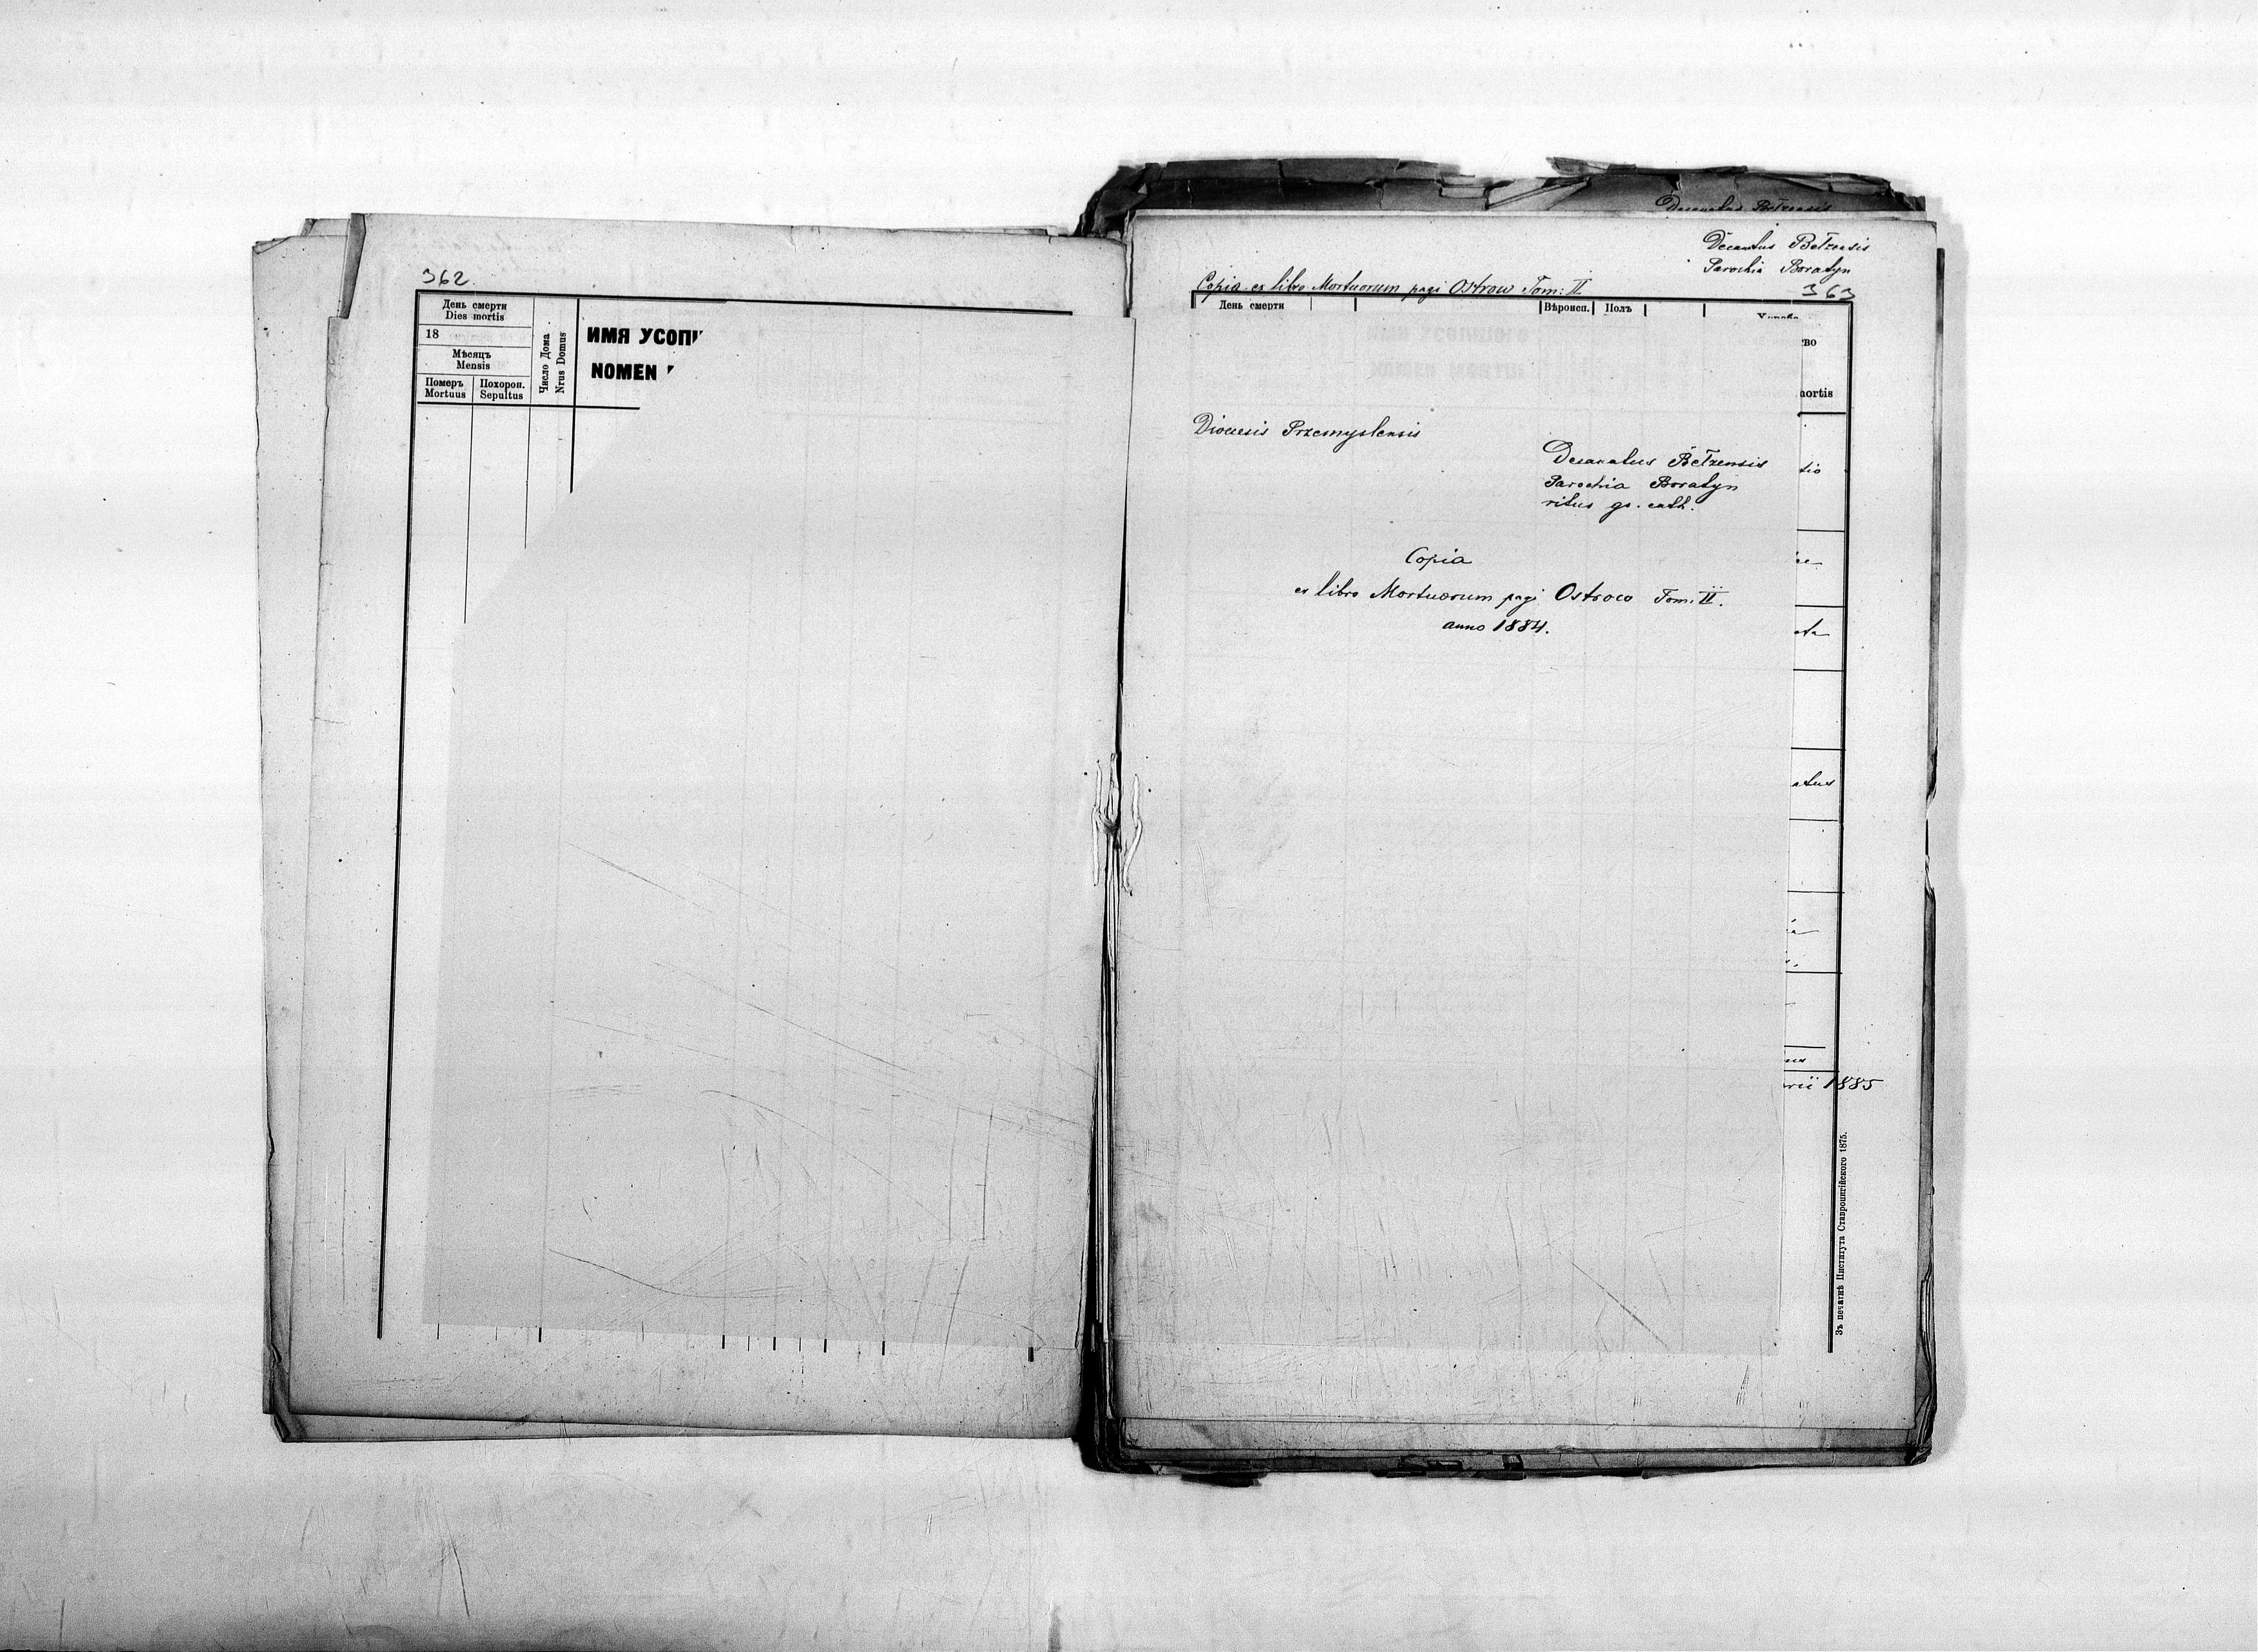 362
День смерти
Dies mortis
18
Мѣсяцъ
Mensis
Померъ
Mortuus
Похорон.
Sepultus
Число Дома
Nrus Domus
ИМЯ УСОПШ
NOMEN
Decanatus Bełzensis
Decanatus Bełzensis
Parochia Boratyn
Copia ex libro Mortuorum pagi Ostrow Tom: II
363
День смерти
Вѣроисп.
Полъ
во
mortis
Dioecesis Przemyslensis
Decanatus Bełzensis
Parochia Boratyn
ritus gr. cath.
Copia
ex libro Mortuorum pagi Ostrow Tom: II.
anno 1884.
1885
Зъ печатнѣ Института Ставропигійского 1875.